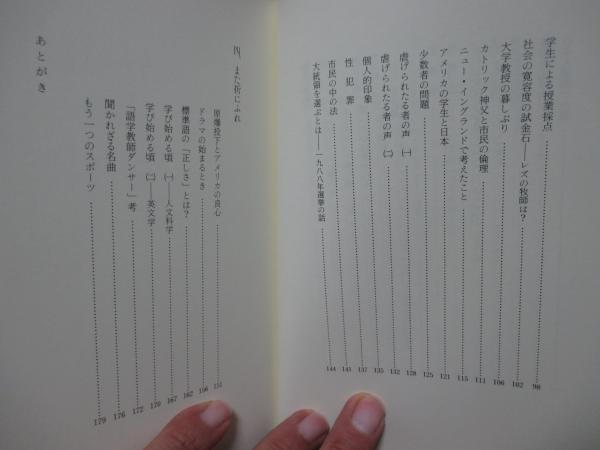 学生による授業採点 98
社会の寛容度の試金石——レズの牧師は？ 102
大学教授の暮しぶり 106
カトリック神父と市民の倫理 111
ニュー・イングランドで考えたこと 115
アメリカの学生と日本 121
少数者の問題 125
虐げられたる者の声（一） 128
虐げられたる者の声（二） 132
個人的印象 135
性犯罪 137
市民の中の法 141
大統領を選ぶとは——一九八八年選挙の話 144
四、また折にふれ
原爆投下とアメリカの良心 151
ドラマの始まるとき 156
標準語の「正しさ」とは？ 162
学び始める頃（一）——人文科学 167
学び始める頃（二）——英文学 170
「語学教師ダンサー」考 172
聞かれざる名曲 176
もう一つのスポーツ 179
あとがき